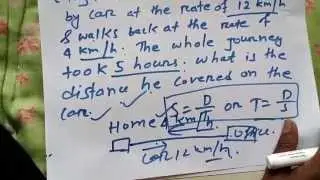 by car at the rate of 12 km/h
& walks back at the rate of
4 km/h. The whole journey
took 5 hours. what is the
distance he covered on the
car.
S = D/T or T = D/S
Home 4 km/h
car 12 km/h